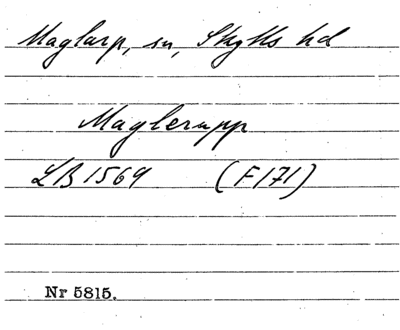 Maglarp, sn, Skytts hd
Maglerupp
LB 1569 (F171)
Nr 5815.